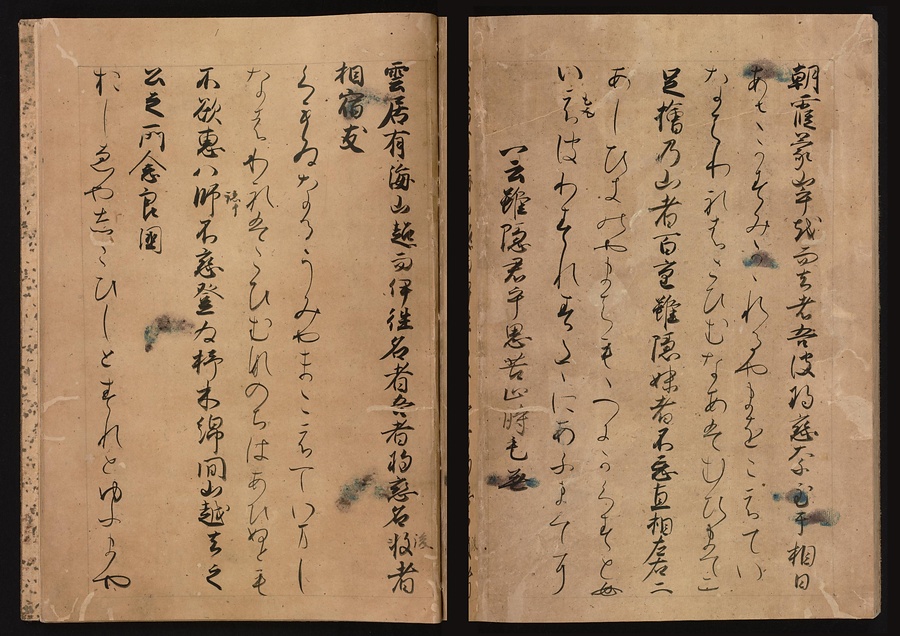 朝霞蒙山乎越而去者吾波将恋奈至于相日
あさかすみかゝれるやまをこえてい
なはわれはこひむなあはむひまてに
足檜乃山者百重雖隠妹者不忘直相左右二
あしひきのやまはもゝへにかくすとも
いもはわすれすたゝにあふまてに
一云雖隠君乎思苦止時毛無
雲居有海山越而伊往名者吾者将恋名後者
相宿友
くもゐなるうみやまこえていまし
なはわれはこひむなのちはあひぬとも
不欲恵八師不恋登為杼木綿間山越去之
公之所念良国
おしゑやしこひしとすれとゆふまや